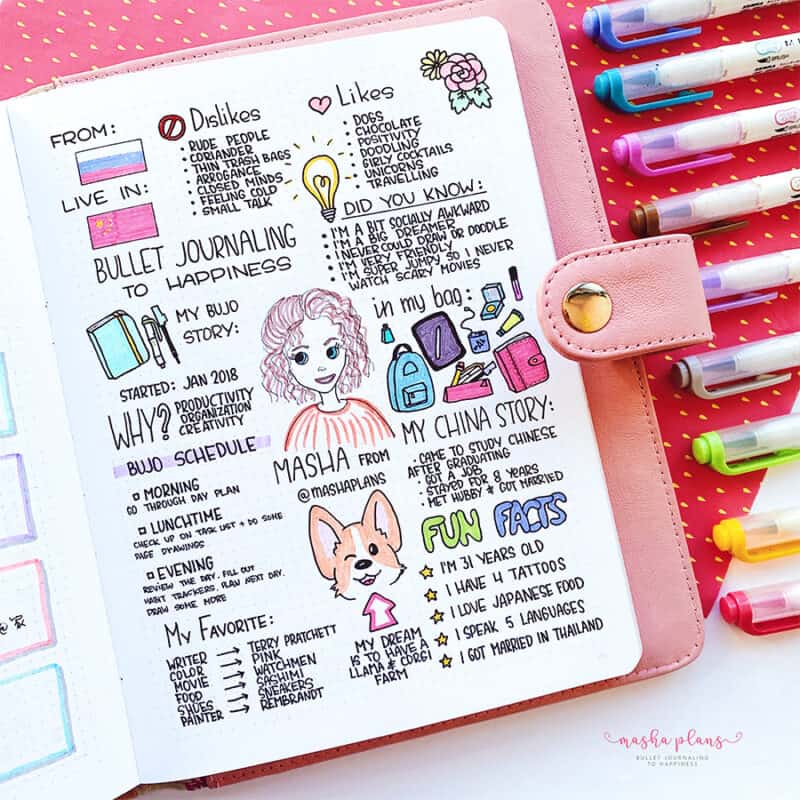 FROM:
LIVE IN:
Dislikes
• RUDE PEOPLE
• CORIANDER
• THIN TRASH BAGS
• ARROGANCE
• CLOSED MINDS
• FEELING COLD
• SMALL TALK
Likes
• DOGS
• CHOCOLATE
• POSITIVITY
• DOODLING
• GIRLY COCKTAILS
• UNICORNS
• TRAVELLING
DID YOU KNOW:
• I'M A BIT SOCIALLY AWKWARD
• I'M A BIG DREAMER
• I NEVER COULD DRAW OR DOODLE
• I'M VERY FRIENDLY
• I'M SUPER JUMPY SO I NEVER
WATCH SCARY MOVIES
BULLET JOURNALING
TO HAPPINESS
MY BUJO
STORY:
STARTED: JAN 2018
WHY?
PRODUCTIVITY
ORGANIZATION
CREATIVITY
in my bag:
BUJO SCHEDULE
MORNING
GO THROUGH DAY PLAN
LUNCHTIME
CHECK UP ON TASK LIST + DO SOME
PAGE DRAWINGS
EVENING
REVIEW THE DAY, FILL OUT
HABIT TRACKERS, PLAN NEXT DAY.
DRAW SOME MORE
MASHA FROM
@MASHAPLANS
MY CHINA STORY:
• CAME TO STUDY CHINESE
AFTER GRADUATING
• GOT A JOB
• STAYED FOR 8 YEARS
• MET HUBBY & GOT MARRIED
FUN FACTS
I'M 31 YEARS OLD
I HAVE 4 TATTOOS
I LOVE JAPANESE FOOD
I SPEAK 5 LANGUAGES
I GOT MARRIED IN THAILAND
MY DREAM
IS TO HAVE A
LLAMA & CORGI
FARM
MY FAVORITE:
WRITER → TERRY PRATCHETT
COLOR → PINK
MOVIE → WATCHMEN
FOOD → SASHIMI
SHOES → SNEAKERS
PAINTER → REMBRANDT
masha plans
BULLET JOURNALING
TO HAPPINESS